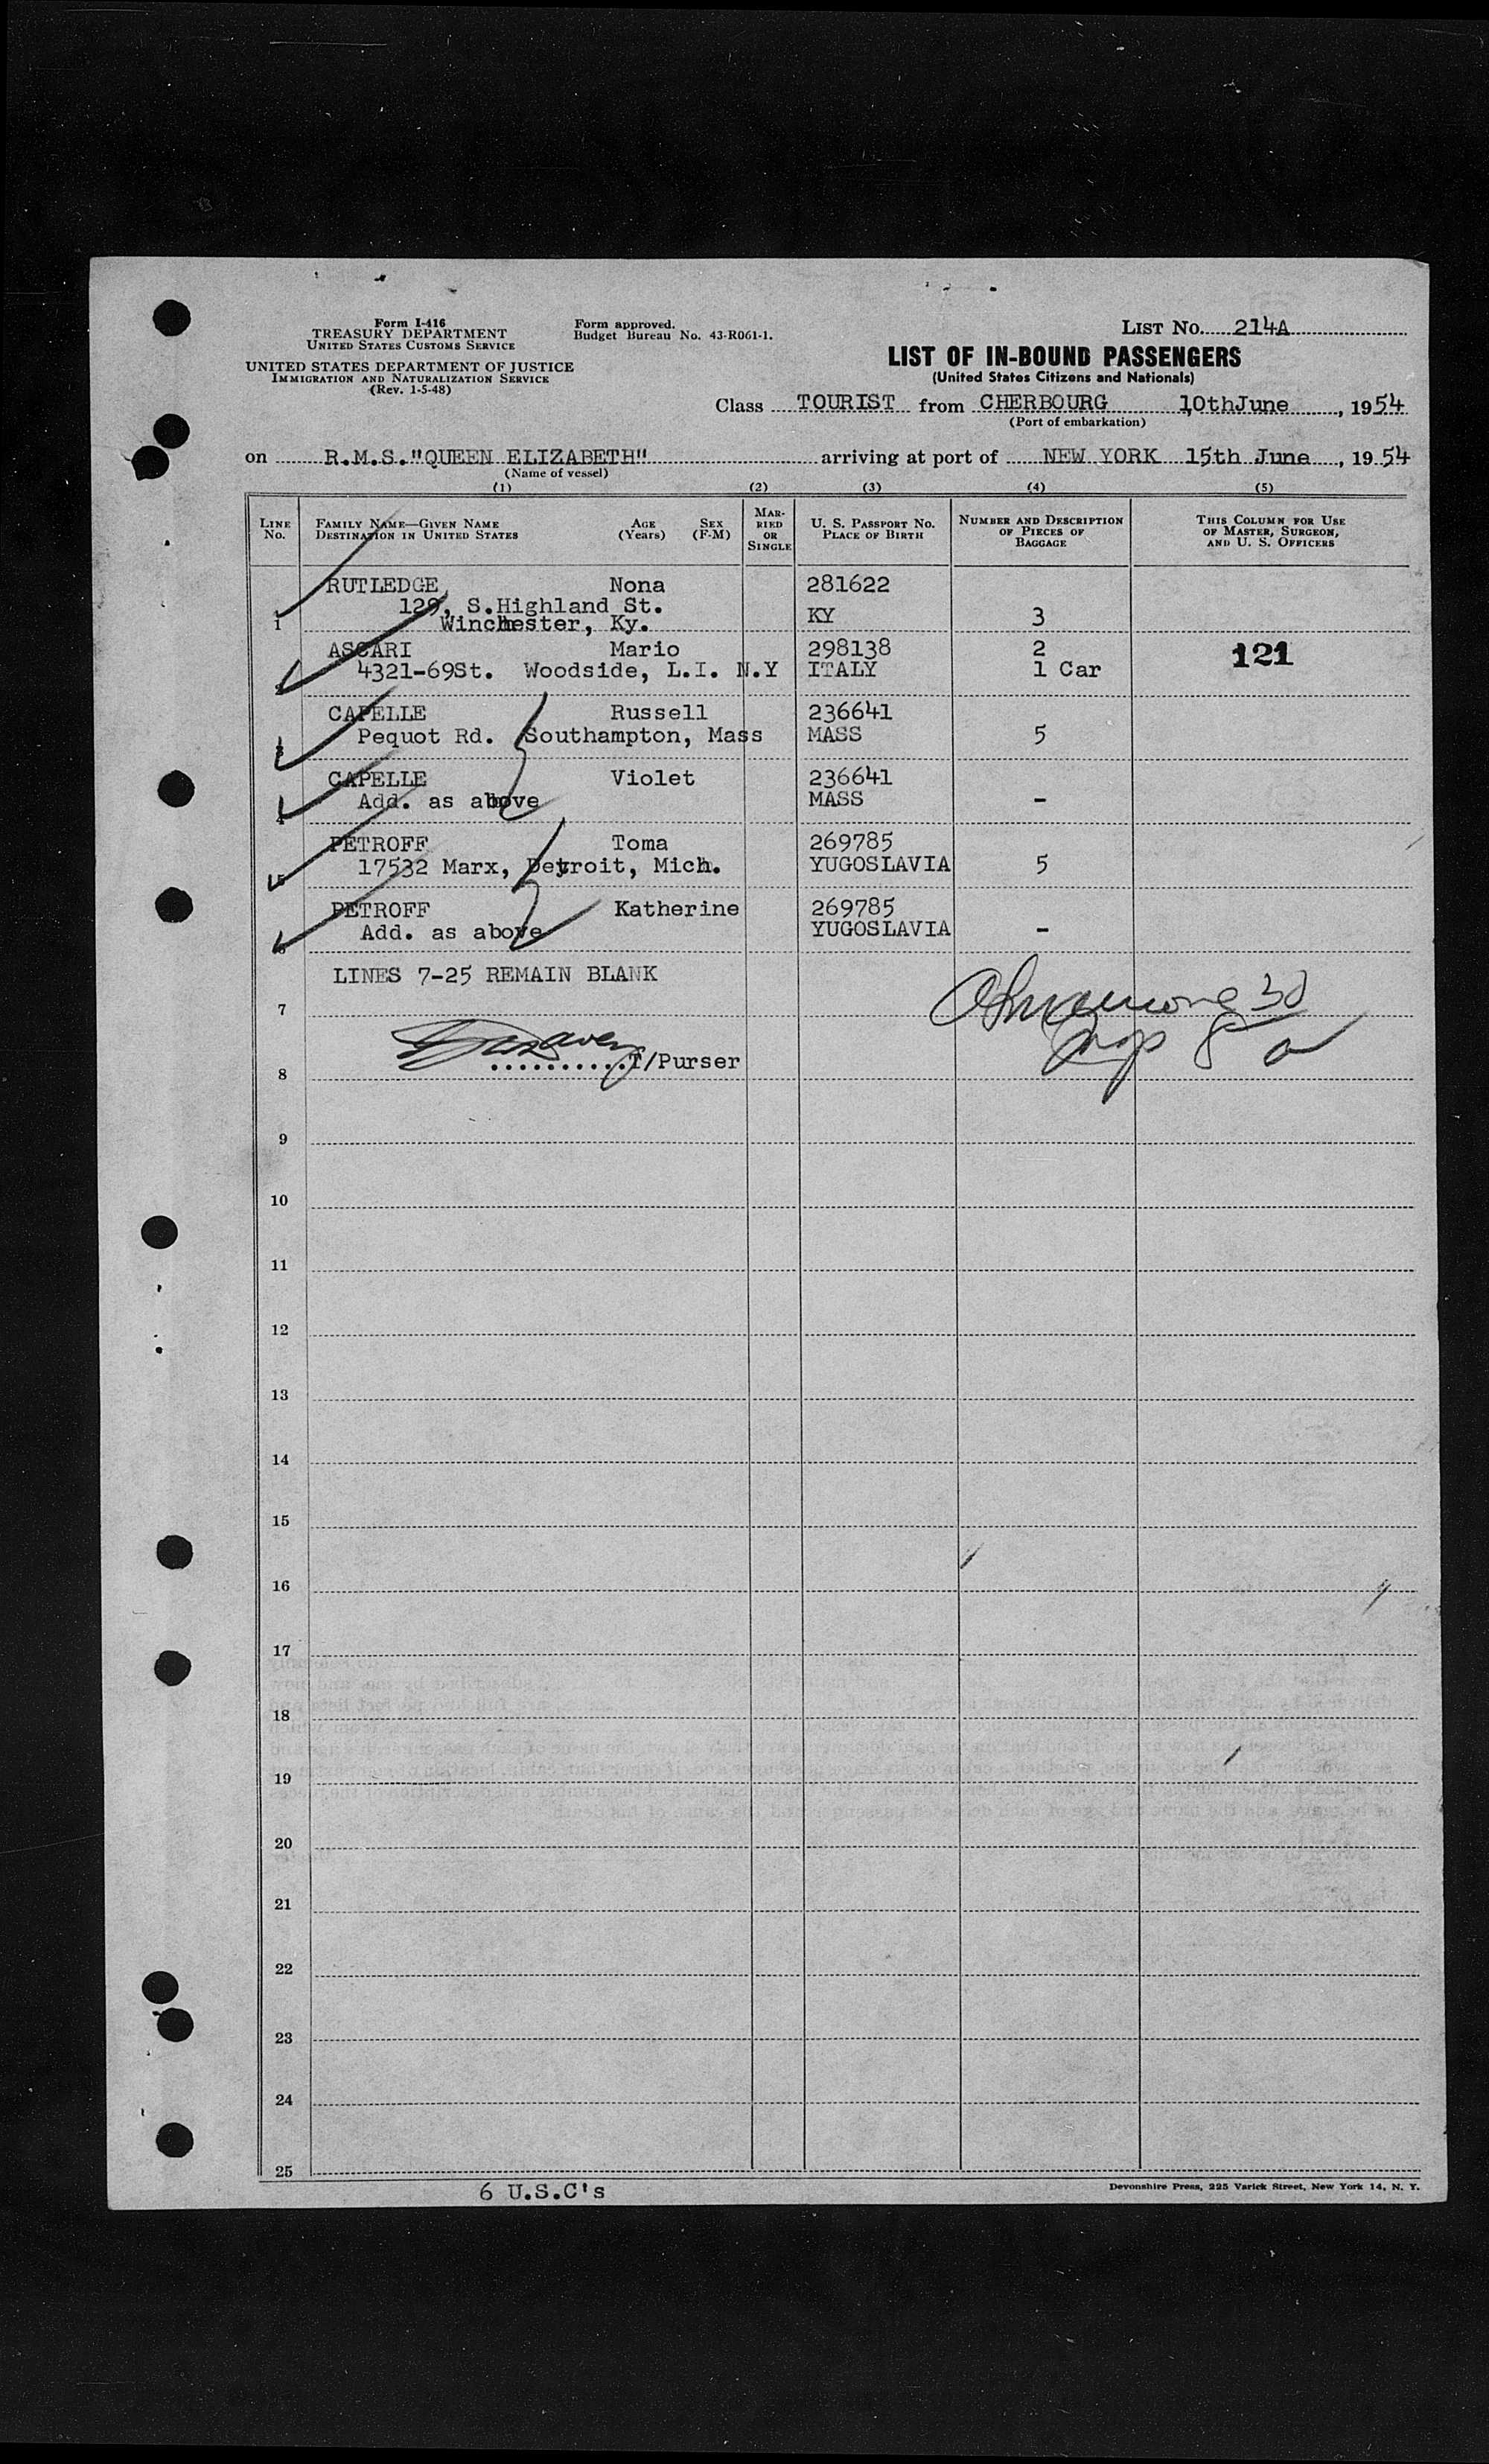 Form I-416
TREASURY DEPARTMENT
UNITED STATES CUSTOMS SERVICE
UNITED STATES DEPARTMENT OF JUSTICE
IMMIGRATION AND NATURALIZATION SERVICE
(Rev. 1-5-48)
Form approved.
Budget Bureau No. 43-R061-1.
LIST NO. 214A
LIST OF IN-BOUND PASSENGERS
(United States Citizens and Nationals)
Class TOURIST from CHERBOURG 10thJune, 1954
(Port of embarkation)
on R.M.S."QUEEN ELIZABETH" arriving at port of NEW YORK 15th June, 1954
(Name of vessel)
(1) (2) (3) (4) (5)
LINE NO.
FAMILY NAME—GIVEN NAME
DESTINATION IN UNITED STATES
AGE (Years)
SEX (F-M)
MARRIED OR SINGLE
U. S. PASSPORT NO.
PLACE OF BIRTH
NUMBER AND DESCRIPTION OF PIECES OF BAGGAGE
THIS COLUMN FOR USE OF MASTER, SURGEON, AND U. S. OFFICERS
RUTLEDGE, Nona 281622
129, S.Highland St.
1 Winchester, Ky. KY 3
ASCARI Mario 298138 2 121
4321-69St. Woodside, L.I. N.Y ITALY 1 Car
CAPELLE Russell 236641
Pequot Rd. Southampton, Mass MASS 5
CAPELLE Violet 236641
4 Add. as above MASS -
PETROFF Toma 269785
5 17532 Marx, Detroit, Mich. YUGOSLAVIA 5
PETROFF Katherine 269785
6 Add. as above YUGOSLAVIA -
LINES 7-25 REMAIN BLANK
7
8 ..........T/Purser
9
10
11
12
13
14
15
16
17
18
19
20
21
22
23
24
25
6 U.S.C's
Devonshire Press, 225 Varick Street, New York 14, N. Y.